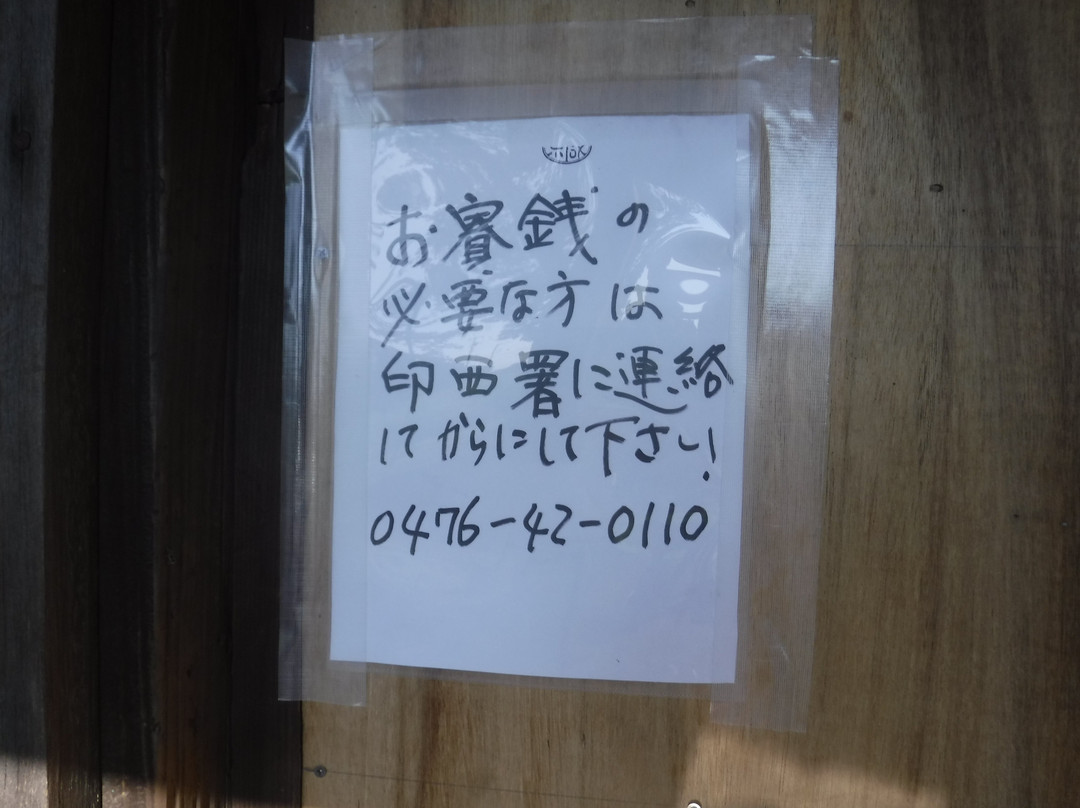 お賽銭の
必要な方は
印西署に連絡
してからにして下さい!
0476-42-0110